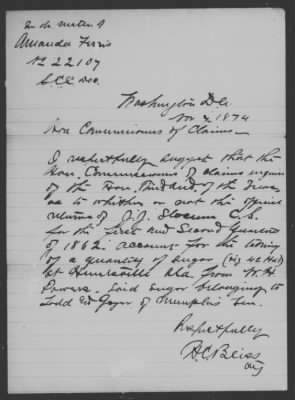 In the matter of
Amanda Ferris
No 22107
Washington D.C.
Nov 1874
Hon Commissioners of Claims—
I respectfully suggest that the
Hon. Commissioners of claims inquire
of the Hon. Aud. of the Treas
as to whether or not the official
returns of J.J. Slocum C.S.
for the first and Second Quarters
of 1862. account for the taking
of a quantity of Sugar
at Huntsville Ala. from
Powers. Said Sugar belonging to
Todd of Memphis Ten.
Respectfully
Atty